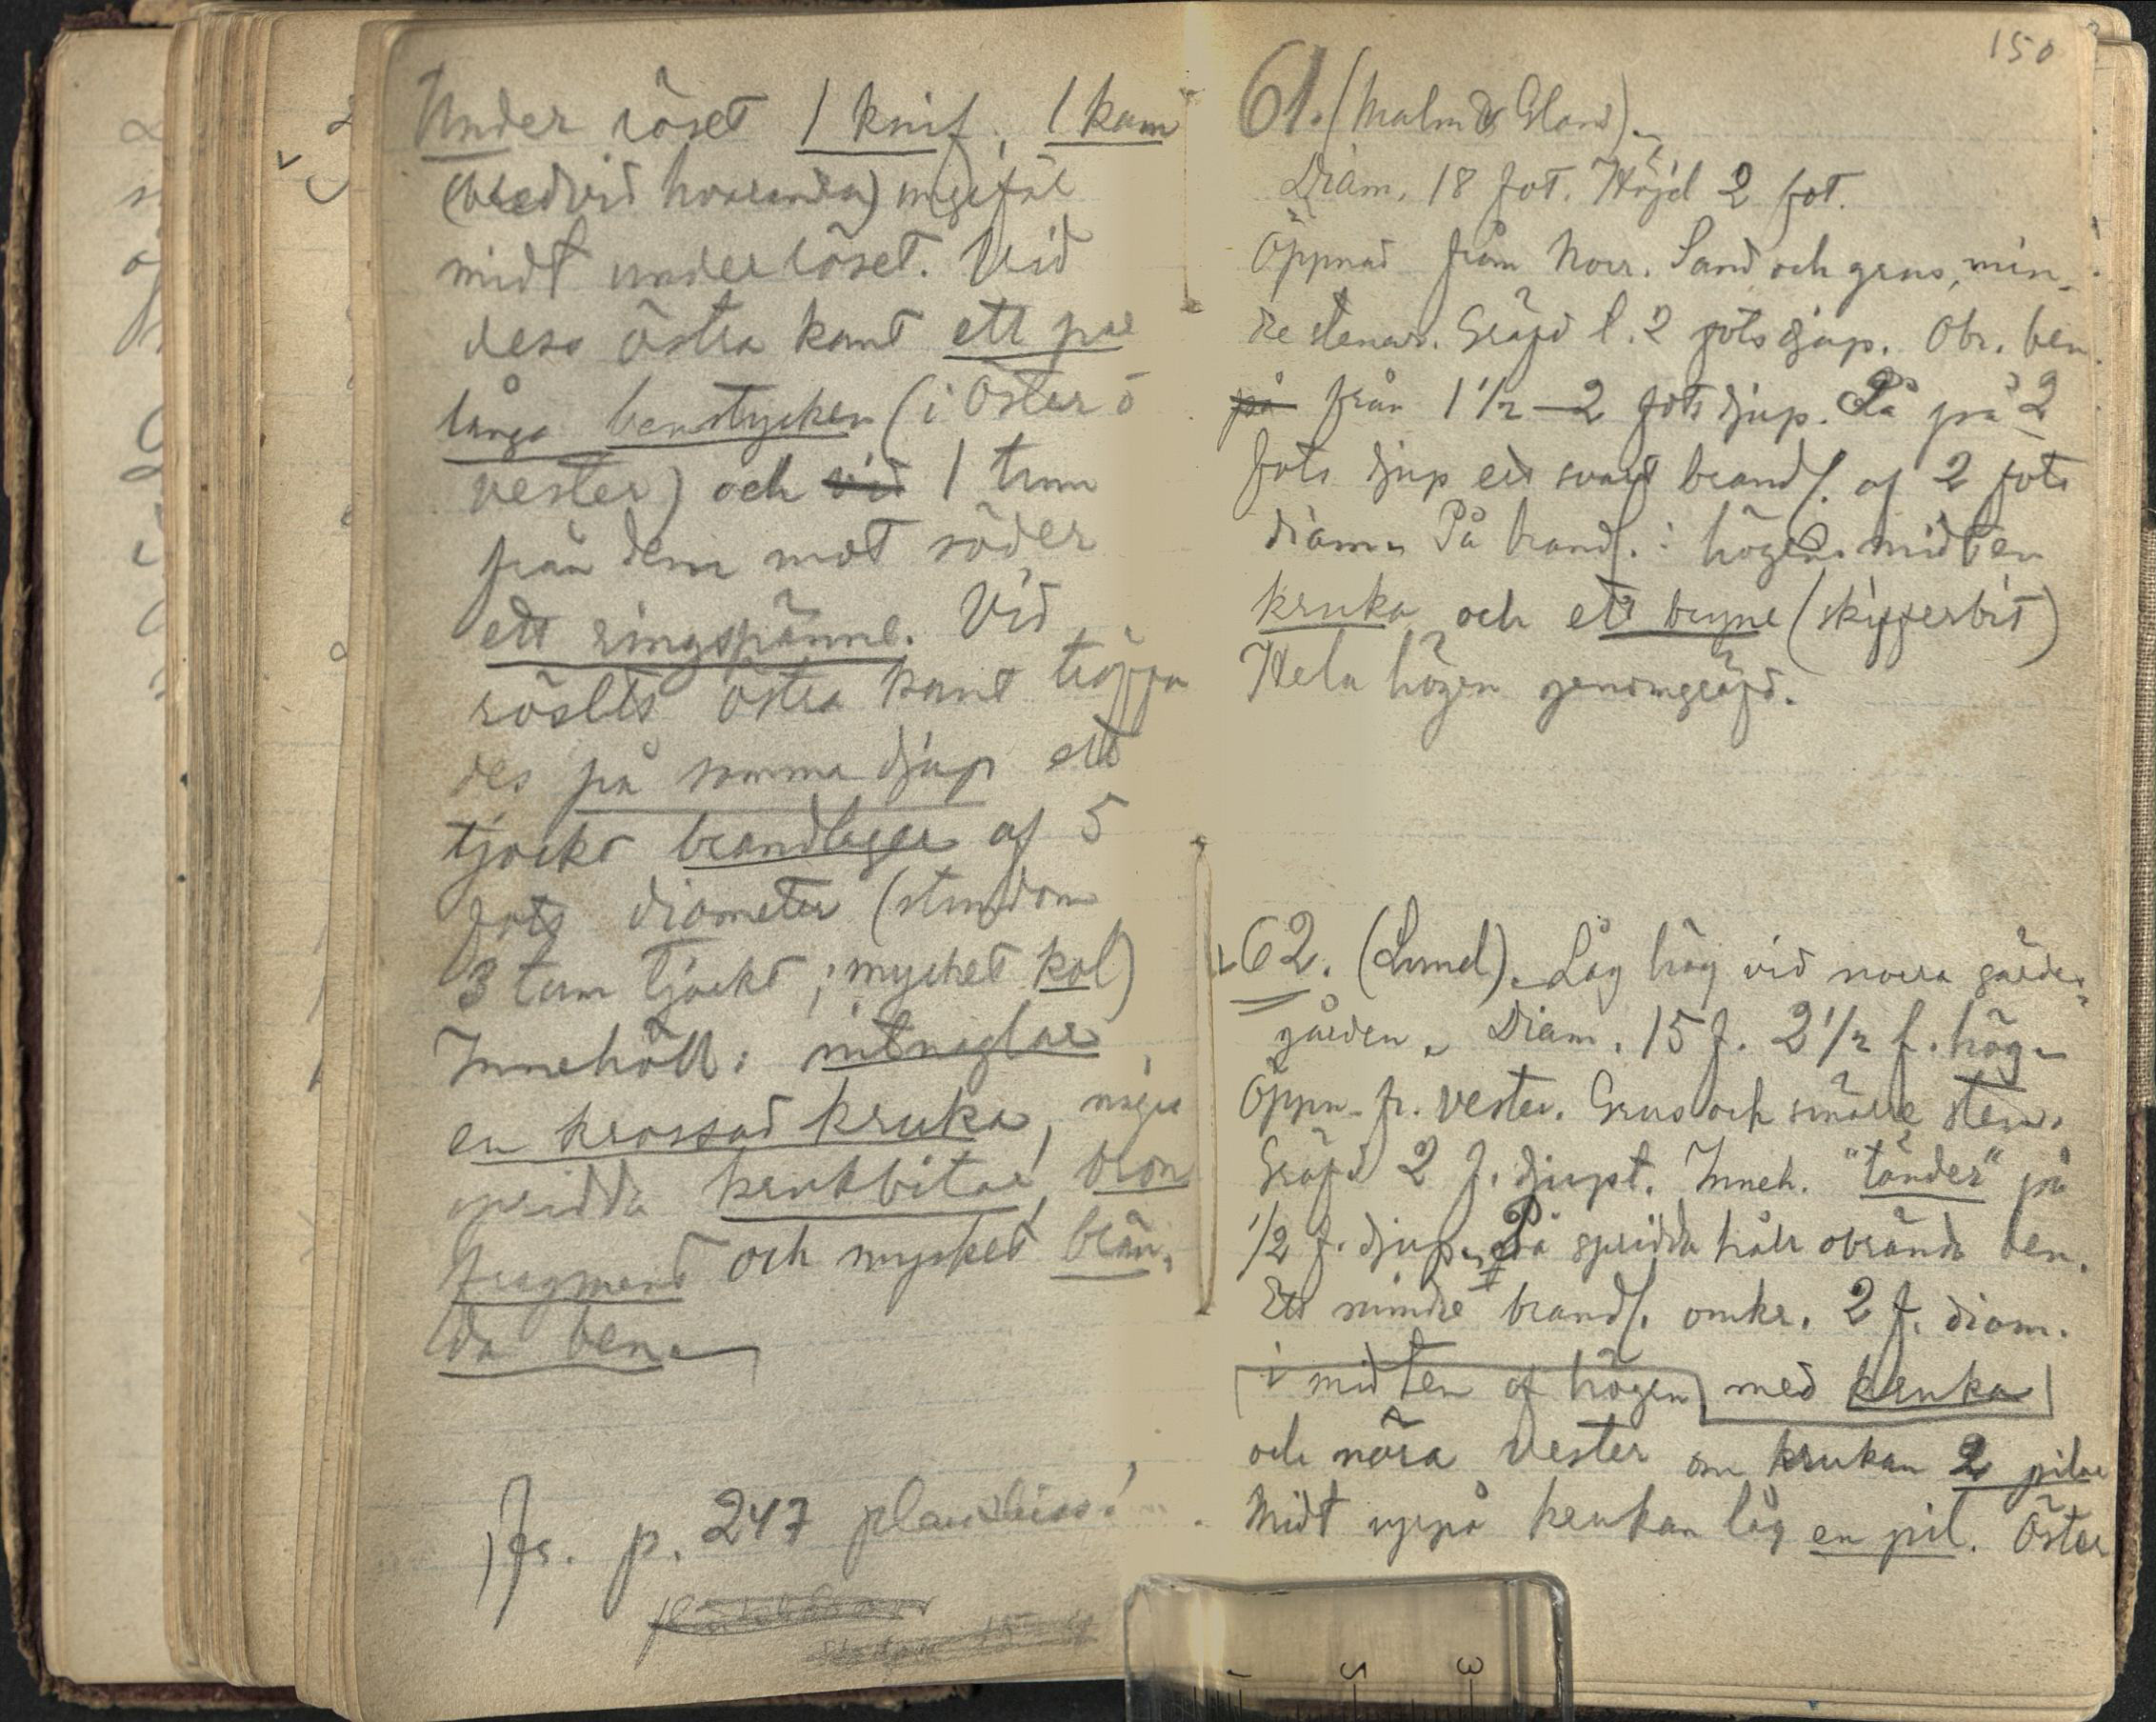 Under röset 1 knif, 1 kam
(bredvid hvarandra) ungefär
midt under röset. Vid
dess östra kant ett par
långa benstycken (i öster o
vester) och vid 1 tum
från dem mot söder
ett ringspänne. Vid
rösets östra kant träffa
des på samma djup ett
tjockt brandlager af 5
fots diameter (stundom
3 tum tjockt; mycket kol)
Innehöll: nitnaglar,
en krossad kruka, några
spridda krukbitar, bron
fragment och mycket brän,
da ben.
Jfr. p. 247
150
61. (Malm & Gland).
Diam. 18 fot. Höjd 2 fot.
Öppnad från Norr. Sand och grus, min,
dre stenar. Gräfd t. 2 fots djup. Obr. ben.
på från 1 1/2 - 2 fots djup. På 2
fots djup ett svart brandl. af 2 fots
diam. På brandl. i högens midten
kruka och ett bryne (skifferbit)
Hela högen genomgräfd.
62. (Lund). Låg hög vid norra gärdes,
gården. Diam. 15 f. 2 1/2 f. hög.
Öppn. fr. vester. Grus och smärre sten.
Gräfd 2 f. djupt. Inneh. "tänder" på
1/2 f. djup. På spridda håll obrända ben.
Ett mindre brandl. omkr. 2 f. diam.
i midten af högen med kruka
och nära vester om krukan 2 pilar
Midt uppå krukan låg en pil. Öster